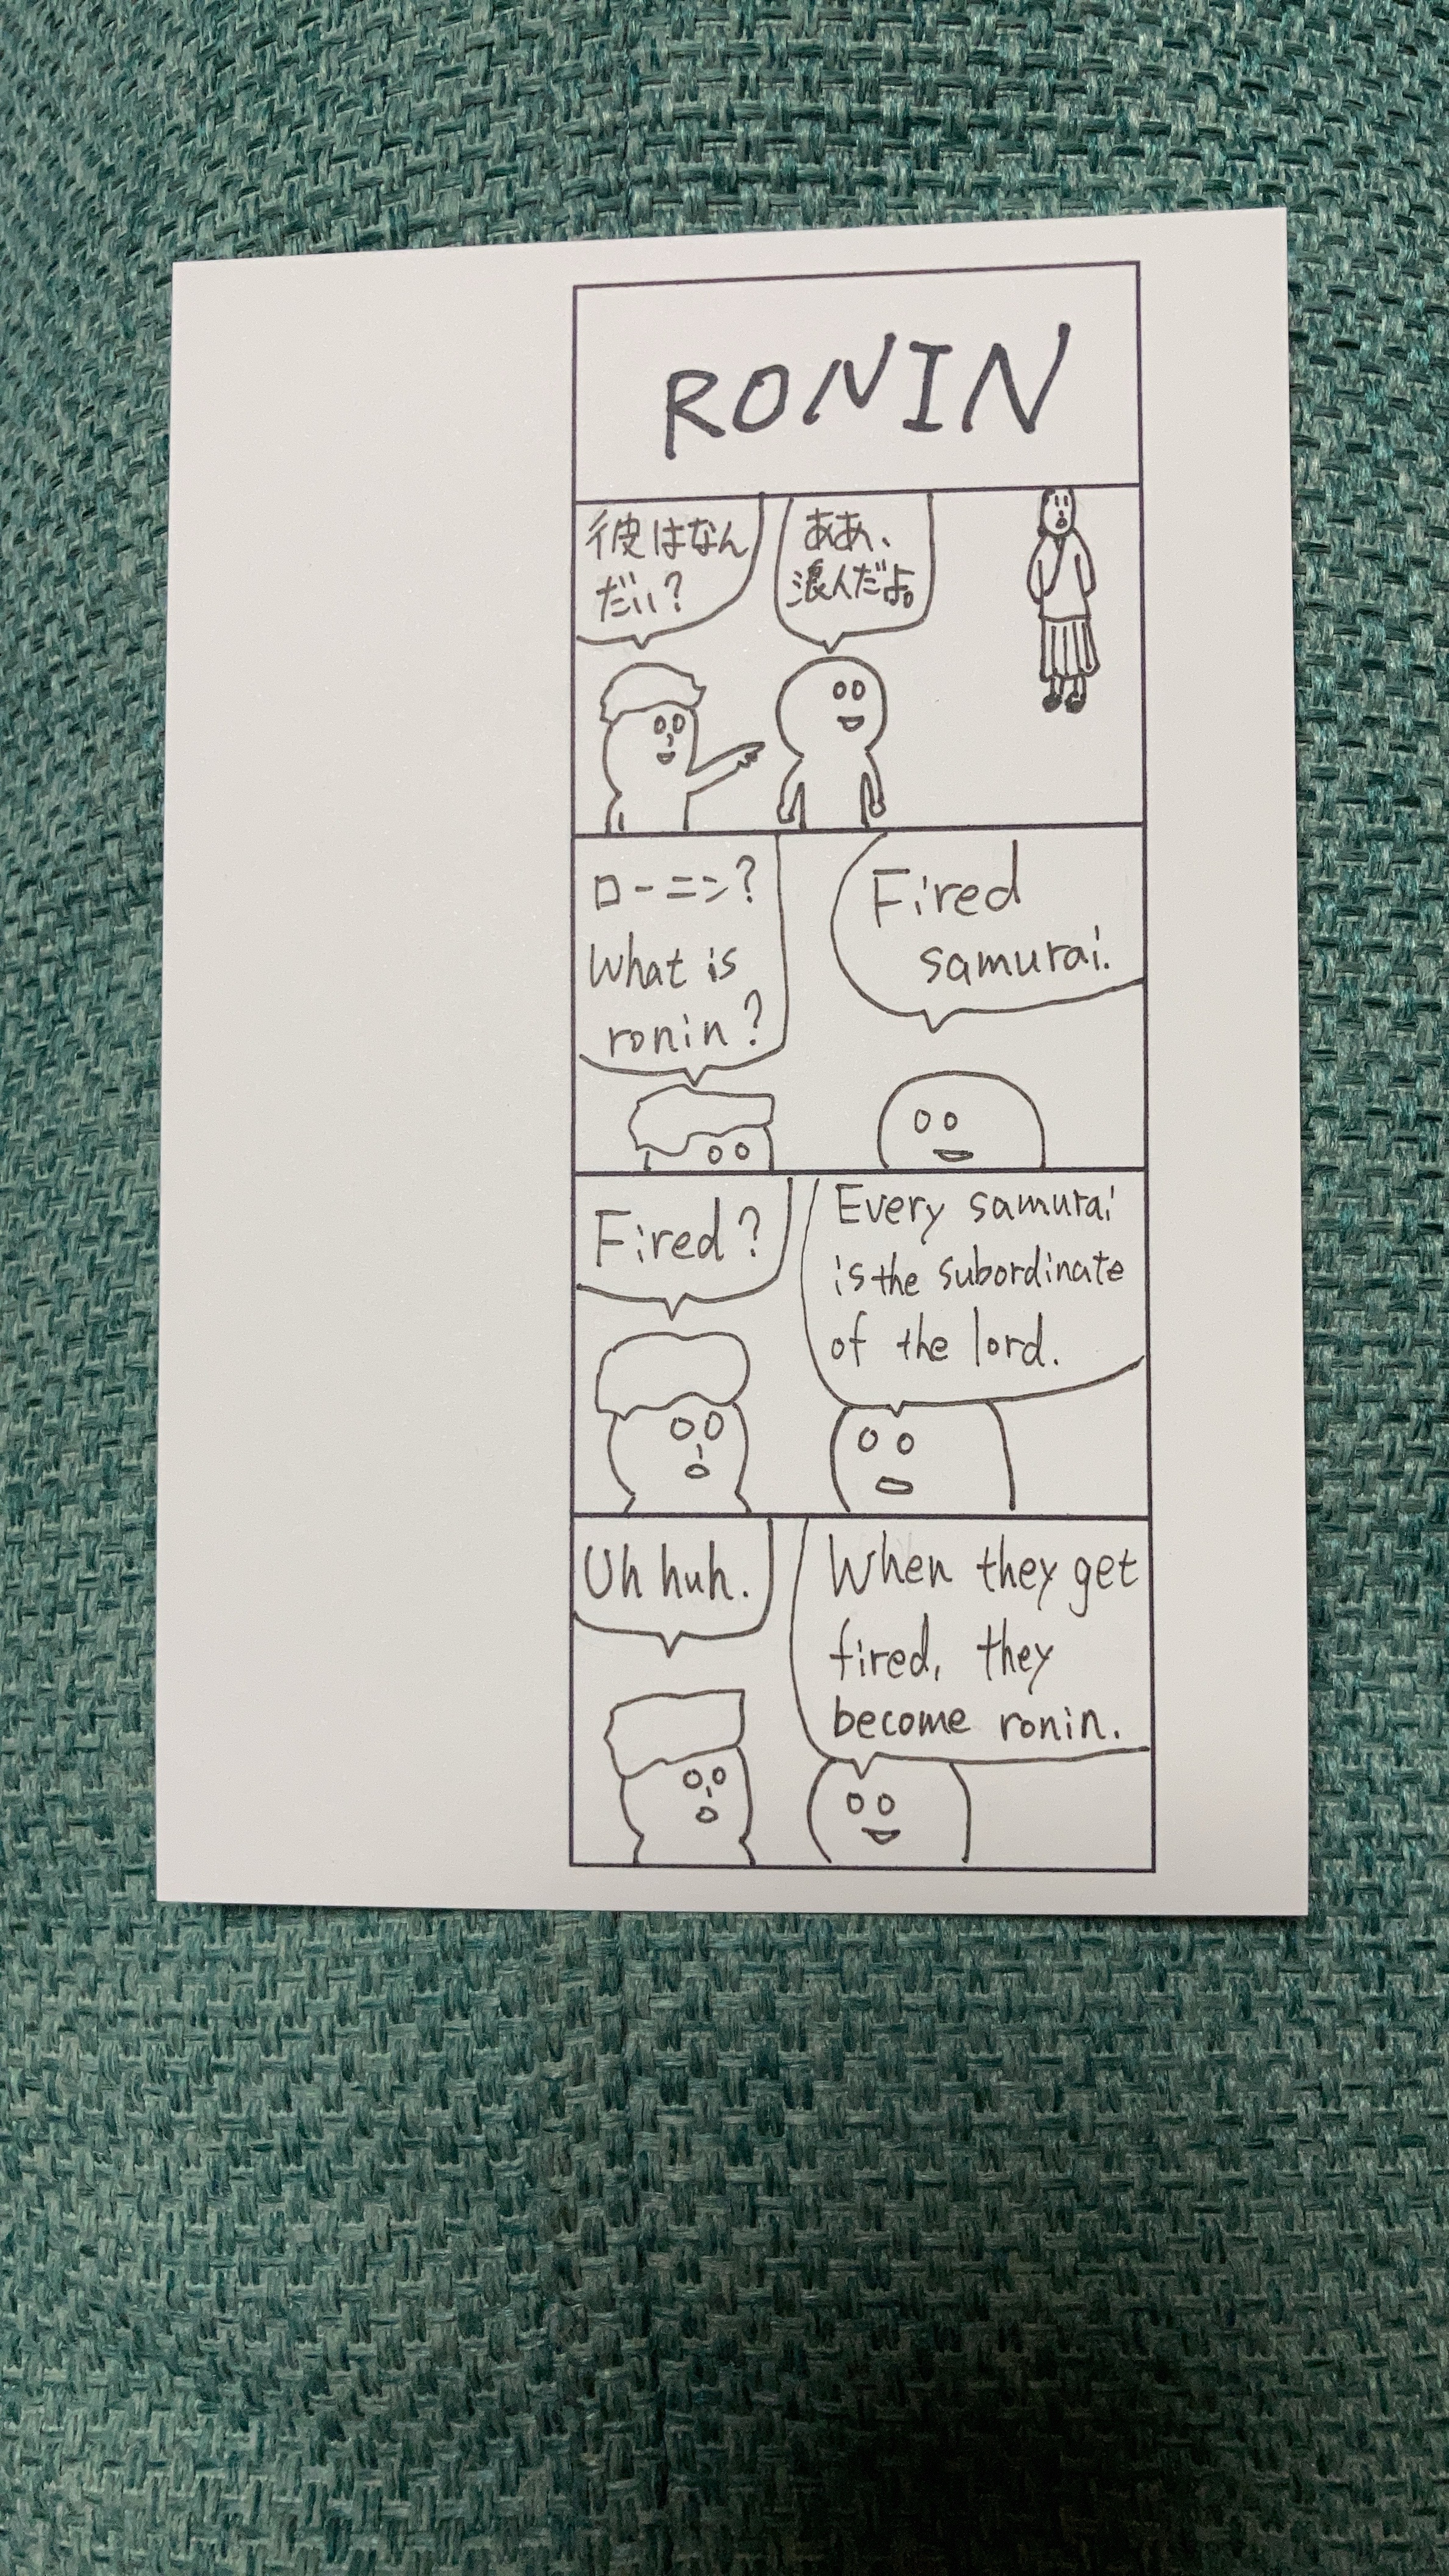 RONIN
彼はなん
だい?
ああ、
浪人だよ。
ローニン?
What is
ronin?
Fired
samurai.
Fired?
Every samurai
is the subordinate
of the lord.
Uh huh.
When they get
fired, they
become ronin.